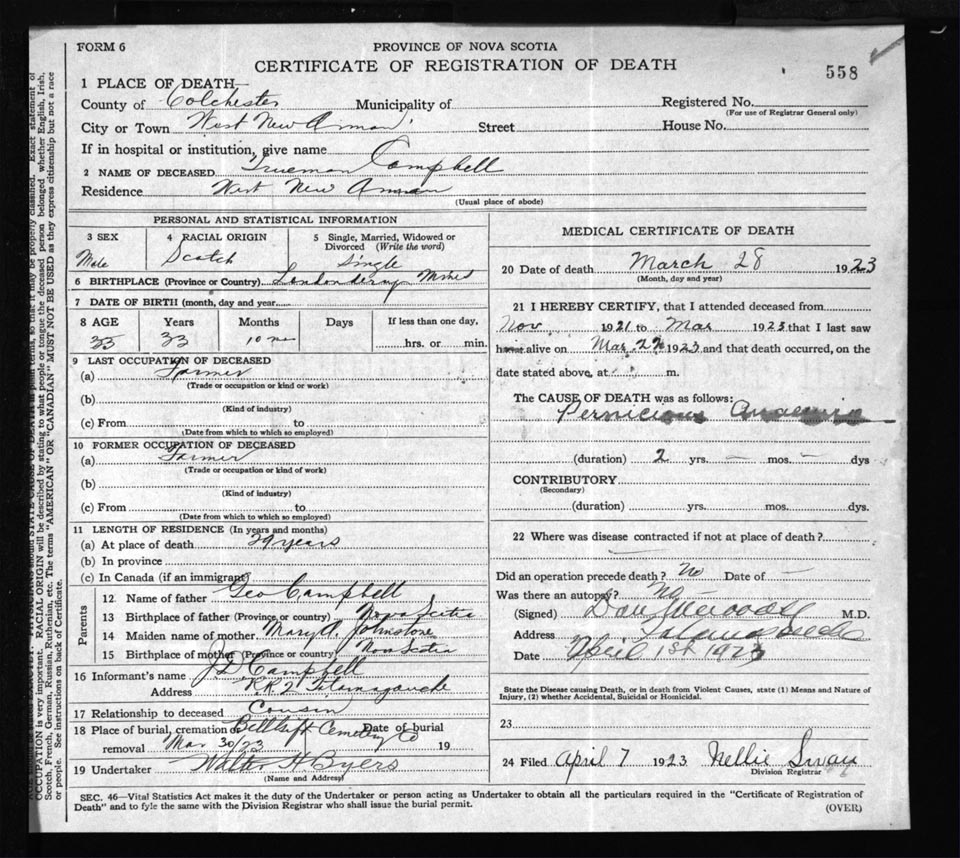 FORM 6
PROVINCE OF NOVA SCOTIA
CERTIFICATE OF REGISTRATION OF DEATH
558
1 PLACE OF DEATH
County of Colchester Municipality of Registered No.
(For use of Registrar General only)
City or Town West New Annan Street House No.
If in hospital or institution, give name
2 NAME OF DECEASED Trueman Campbell
Residence West New Annan
(Usual place of abode)
PERSONAL AND STATISTICAL INFORMATION
3 SEX 4 RACIAL ORIGIN 5 Single, Married, Widowed or Divorced (Write the word)
Male Scotch Single
6 BIRTHPLACE (Province or Country) Londonderry Mines
7 DATE OF BIRTH (month, day and year
8 AGE Years Months Days If less than one day,
33 33 10 hrs. or min.
9 LAST OCCUPATION OF DECEASED
(a) Farmer
(Trade or occupation or kind or work)
(b)
(Kind of industry)
(c) From to
(Date from which to which so employed)
10 FORMER OCCUPATION OF DECEASED
(a) Farmer
(Trade or occupation or kind of work)
(b)
(Kind of industry)
(c) From to
(Date from which to which so employed)
11 LENGTH OF RESIDENCE (In years and months)
(a) At place of death 29 years
(b) In province
(c) In Canada (if an immigrant)
Parents
12 Name of father Geo Campbell
13 Birthplace of father (Province or country) Nova Scotia
14 Maiden name of mother Mary A. Johnstone
15 Birthplace of mother (Province or country) Nova Scotia
16 Informant's name Campbell
Address R.R 2 Tatamagouche
17 Relationship to deceased Cousin
18 Place of burial, cremation or removal Cemetery Date of burial
Mar 30/23 19
19 Undertaker Walter H Byers
(Name and Address)
MEDICAL CERTIFICATE OF DEATH
20 Date of death March 28 1923
(Month, day and year)
21 I HEREBY CERTIFY, that I attended deceased from
Nov 1921 to Mar 1923 that I last saw
h alive on Mar. 1923 and that death occurred, on the
date stated above, at m.
The CAUSE OF DEATH was as follows:
Pernicious Anaemia
(duration) 2 yrs. — mos. — dys
CONTRIBUTORY
(Secondary)
(duration) yrs. mos. dys.
22 Where was disease contracted if not at place of death?
Did an operation precede death? No Date of —
Was there an autopsy? No
(Signed) Dan M.D.
Address
Date April 1st 1923
State the Disease causing Death, or in death from Violent Causes, state (1) Means and Nature of
Injury, (2) whether Accidental, Suicidal or Homicidal.
23
24 Filed April 7 1923 Nellie Swan
Division Registrar
SEC. 46—Vital Statistics Act makes it the duty of the Undertaker or person acting as Undertaker to obtain all the particulars required in the "Certificate of Registration of
Death" and to fyle the same with the Division Registrar who shall issue the burial permit.
(OVER)
OCCUPATION is very important. RACIAL ORIGIN will be described by stating to what people or tongue the deceased person belonged whether English, Irish,
Scotch, French, German, Russian, Ruthenian, etc. The terms "AMERICAN" OR "CANADIAN" MUST NOT BE USED as they express citizenship but not a race
or people. See instructions on back of Certificate.